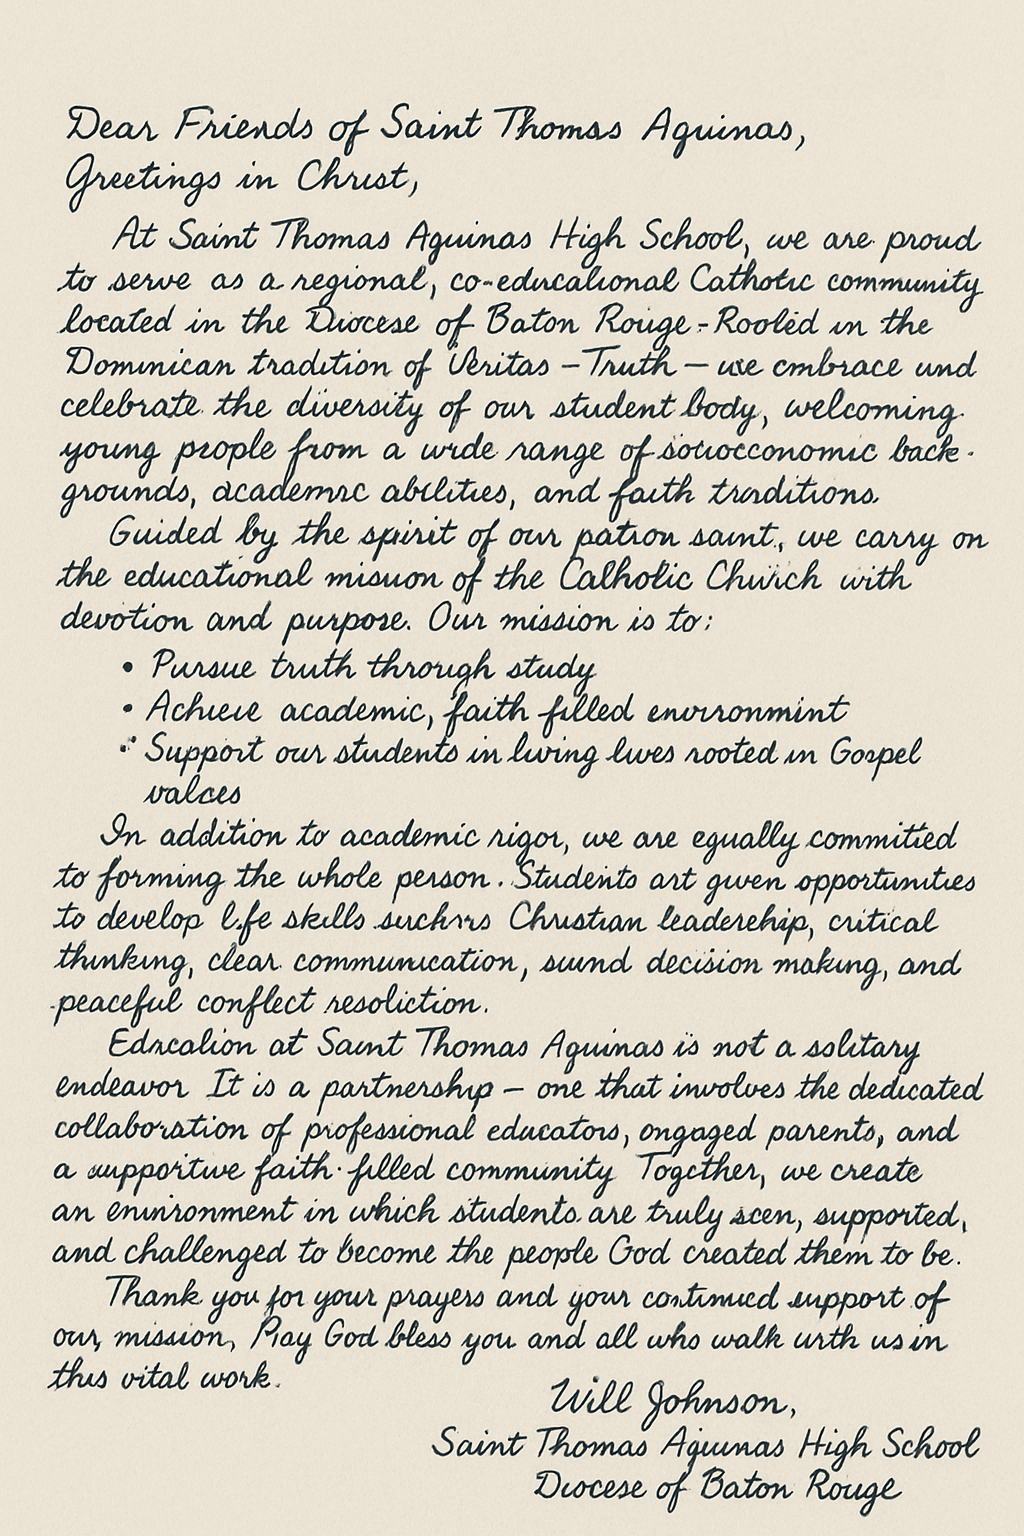 Dear Friends of Saint Thomas Aquinas,
Greetings in Christ,
At Saint Thomas Aquinas High School, we are proud
to serve as a regional, co-educational Catholic community
located in the Diocese of Baton Rouge-Rooted in the
Dominican tradition of Veritas – Truth – we embrace und
celebrate the diversity of our student body, welcoming
young people from a wide range of socioeconomic back-
grounds, academic abilities, and faith traditions.
Guided by the spirit of our patron saint, we carry on
the educational mission of the Catholic Church with
devotion and purpose. Our mission is to:
• Pursue truth through study
• Achieve academic, faith filled environmint
• Support our students in living lives rooted in Gospel
values
In addition to academic rigor, we are equally committed
to forming the whole person. Students art given opportunities
to develop life skills such as Christian leadership, critical
thinking, clear communication, sound decision making, and
peaceful conflect resoliction.
Education at Saint Thomas Aquinas is not a solitary
endeavor It is a partnership – one that involves the dedicated
collaboration of professional educators, engaged parents, and
a supportive faith-filled community Together, we create
an environment in which students are truly seen, supported,
and challenged to become the people God created them to be.
Thank you for your prayers and your continued support of
our, mission, Pray God bless you and all who walk with us in
this vital work.
Will Johnson,
Saint Thomas Aquinas High School
Diocese of Baton Rouge